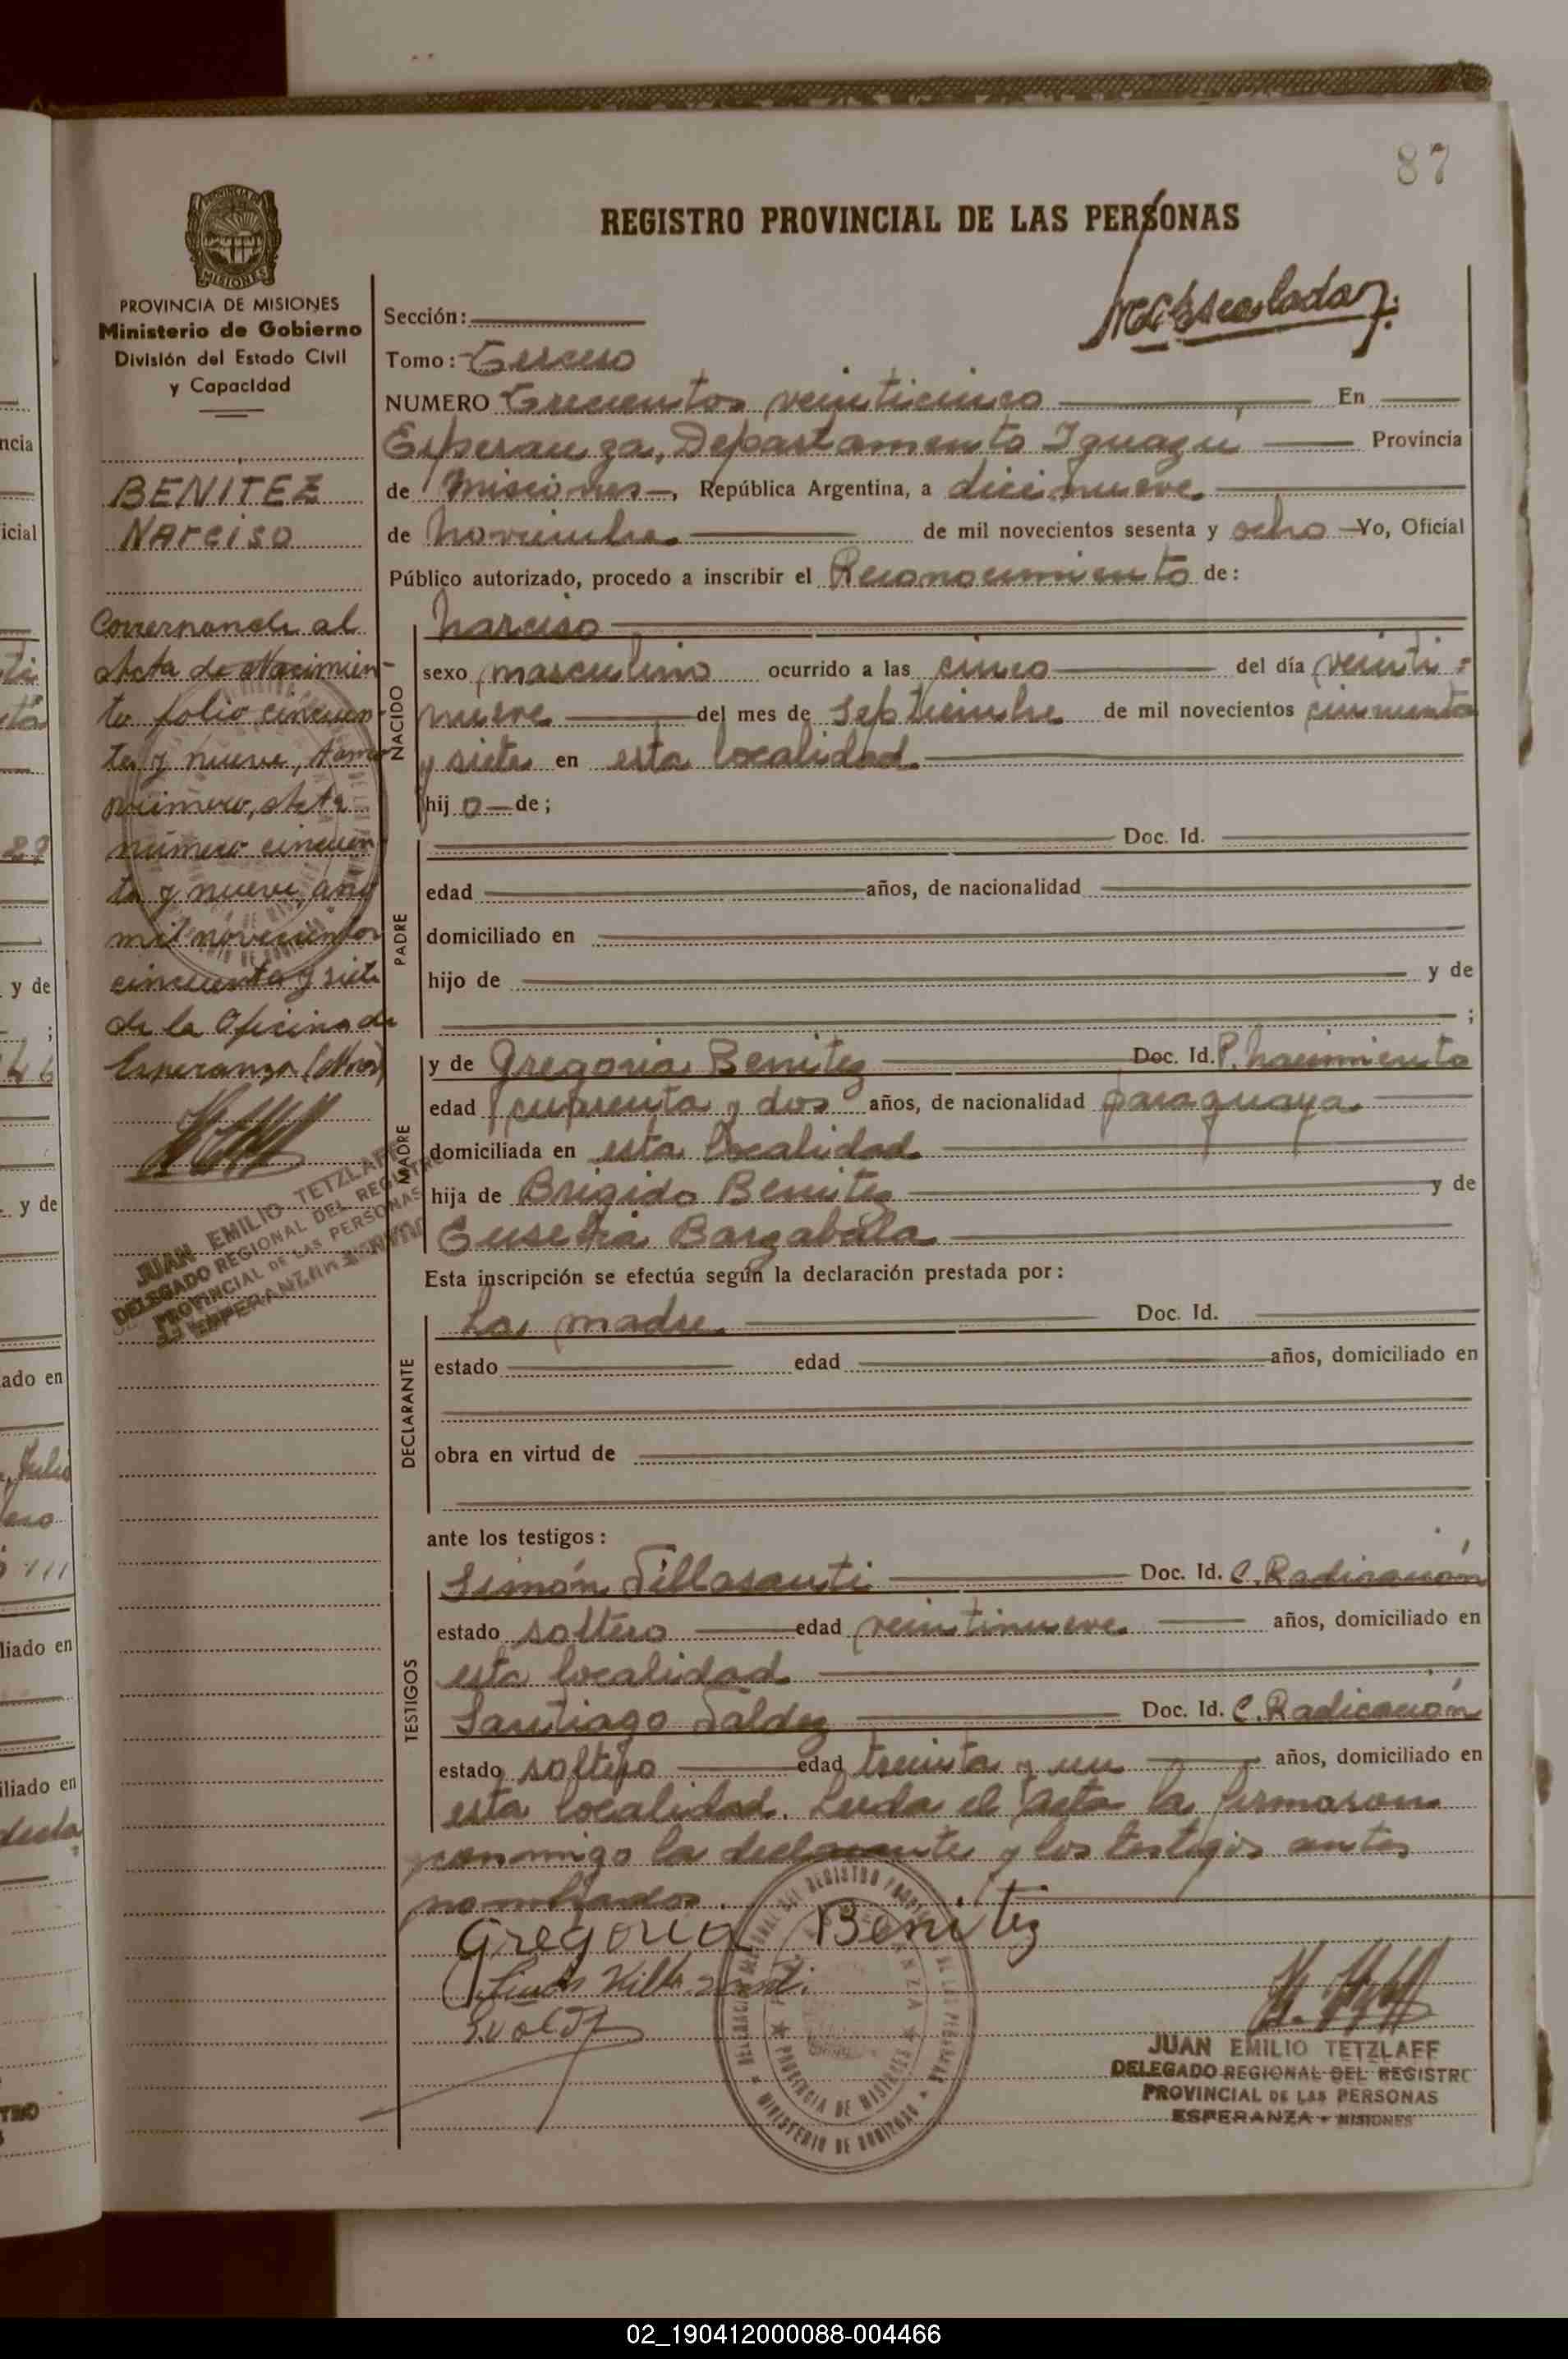 87
REGISTRO PROVINCIAL DE LAS PERSONAS
PROVINCIA DE MISIONES
Ministerio de Gobierno
División del Estado Civil
y Capacidad
BENITEZ
NARCISO
Corresponde al
Acta de Nacimien-
to folio cincuen-
ta y nueve, tomo
primero, Acta
número cincuen-
ta y nueve, año
mil novecientos
cincuenta y siete
de la Oficina de
Esperanza (Mnes)
JUAN EMILIO TETZLAFF
DELEGADO REGIONAL DEL REGISTRO
PROVINCIAL DE LAS PERSONAS
ESPERANZA
Sección:
Tomo: Tercero
NUMERO Trecientos veinticinco En
Esperanza, Departamento Iguazú Provincia
de Misiones, República Argentina, a diecinueve
de noviembre de mil novecientos sesenta y ocho Yo, Oficial
Público autorizado, procedo a inscribir el Reconocimiento de:
NACIDO
Narciso
sexo masculino ocurrido a las cinco del día veinti-
nueve del mes de septiembre de mil novecientos cincuenta
y siete en esta localidad
hij o de;
PADRE
Doc. Id.
edad años, de nacionalidad
domiciliado en
hijo de y de
;
MADRE
y de Gregoria Benitez Doc. Id. P. nacimiento
edad cuarenta y dos años, de nacionalidad paraguaya
domiciliada en esta localidad
hija de Brigido Benitez y de
Eusebia
Esta inscripción se efectúa según la declaración prestada por:
DECLARANTE
La madre Doc. Id.
estado edad años, domiciliado en
obra en virtud de
ante los testigos:
TESTIGOS
Simón Villasanti Doc. Id. C. Radicación
estado soltero edad veintinueve años, domiciliado en
esta localidad
Santiago Valdez Doc. Id. C. Radicación
estado soltero edad treinta y un años, domiciliado en
esta localidad. Leida el Acta la firmaron
conmigo la declarante y los testigos antes
nombrados.
Gregoria Benitez
JUAN EMILIO TETZLAFF
DELEGADO REGIONAL DEL REGISTRO
PROVINCIAL DE LAS PERSONAS
ESPERANZA - MISIONES
PROVINCIA DE MISIONES
MINISTERIO DE GOBIERNO
02_190412000088-004466